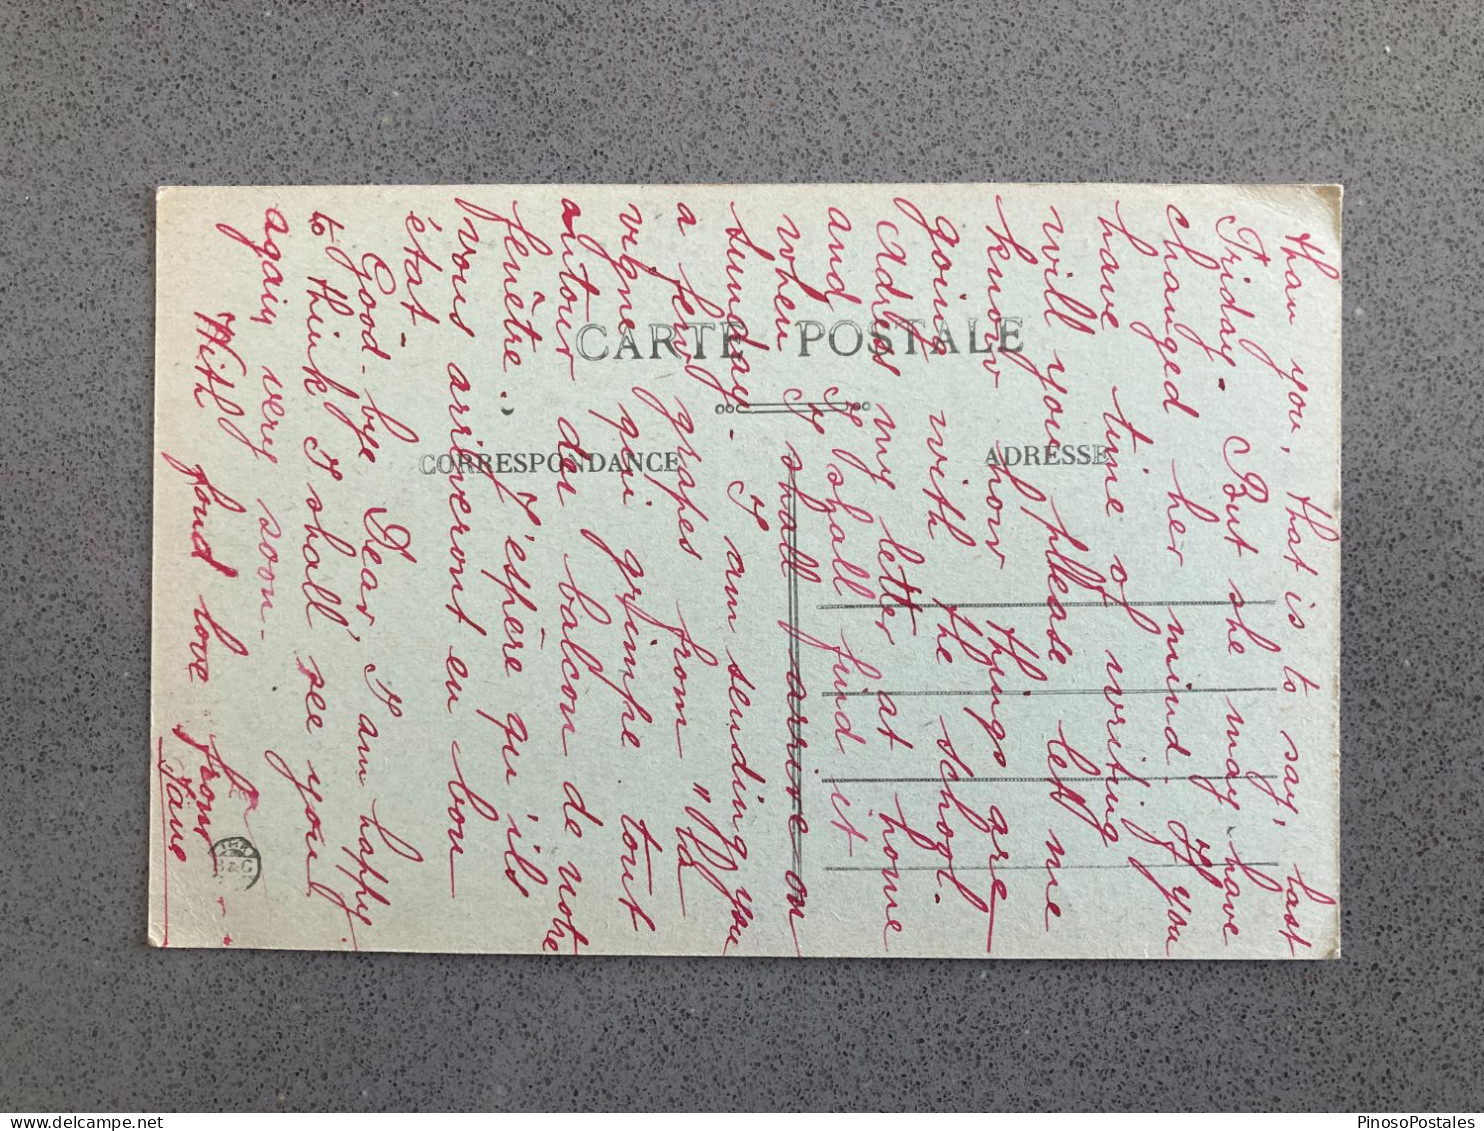 than you, that is to say, last
Friday. But she may have
changed her mind. If you
have time of writing
will you please let me
know how things are
going with the school.
Adres my letter at home
and I shall find it
when I shall arrive on
Sunday. I am sending you
a few grapes from "la
vigne qui grimpe tout
autour du balcon de notre
fenêtre". J'espère qu'ils
vous arriveront en bon
état.
Good-bye Dear, I am happy
to think I shall see you
again very soon.
With fond love from
CARTE POSTALE
CORRESPONDANCE
ADRESSE
PinosoPostales